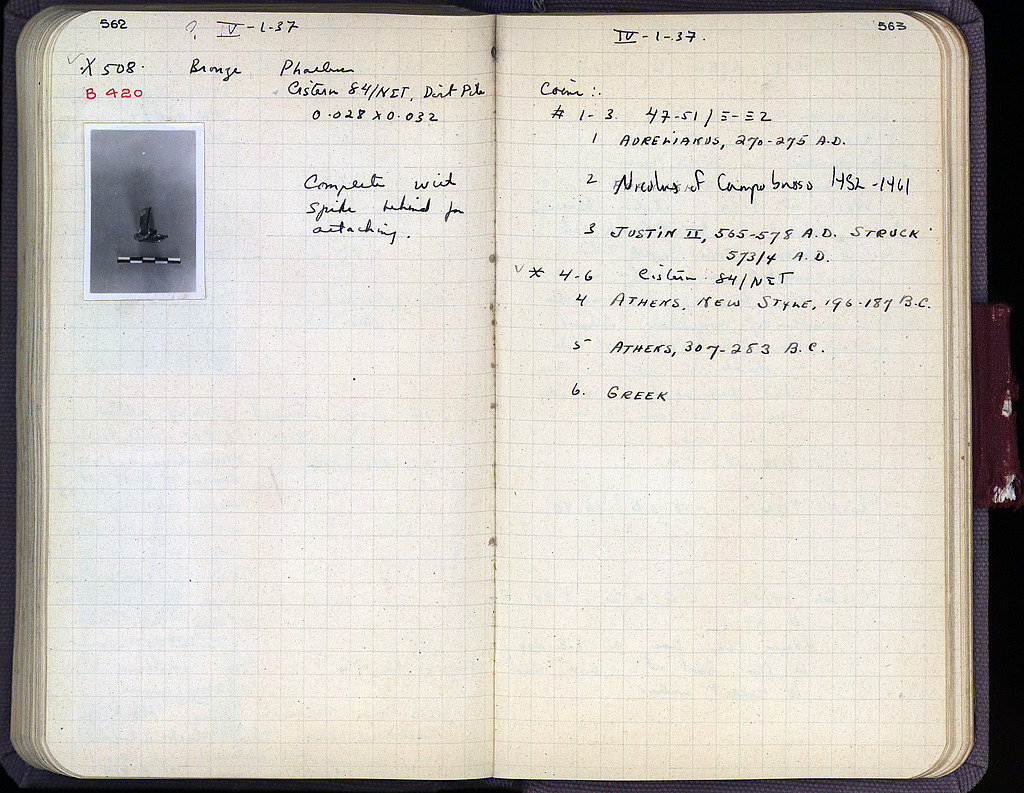 562
? IV-1-37
X 508. Bronze Phaelum
B 420
Cistern 84/ΝΣΤ, Dirt Pile
0.028 x 0.032
Complete with
spike behind for
attaching.
563
IV-1-37.
Coins:.
# 1-3. 47-51/Ξ-Ξ2
1 AURELIANUS, 270-275 A.D.
2 Nicolas of Campobasso 1452-1461
3 JUSTIN II, 565-578 A.D. STRUCK
573/4 A.D.
# 4-6 Cistern 84/ΝΣΤ
4 ATHENS, NEW STYLE, 196-187 B.C.
5 ATHENS, 307-283 B.C.
6. GREEK